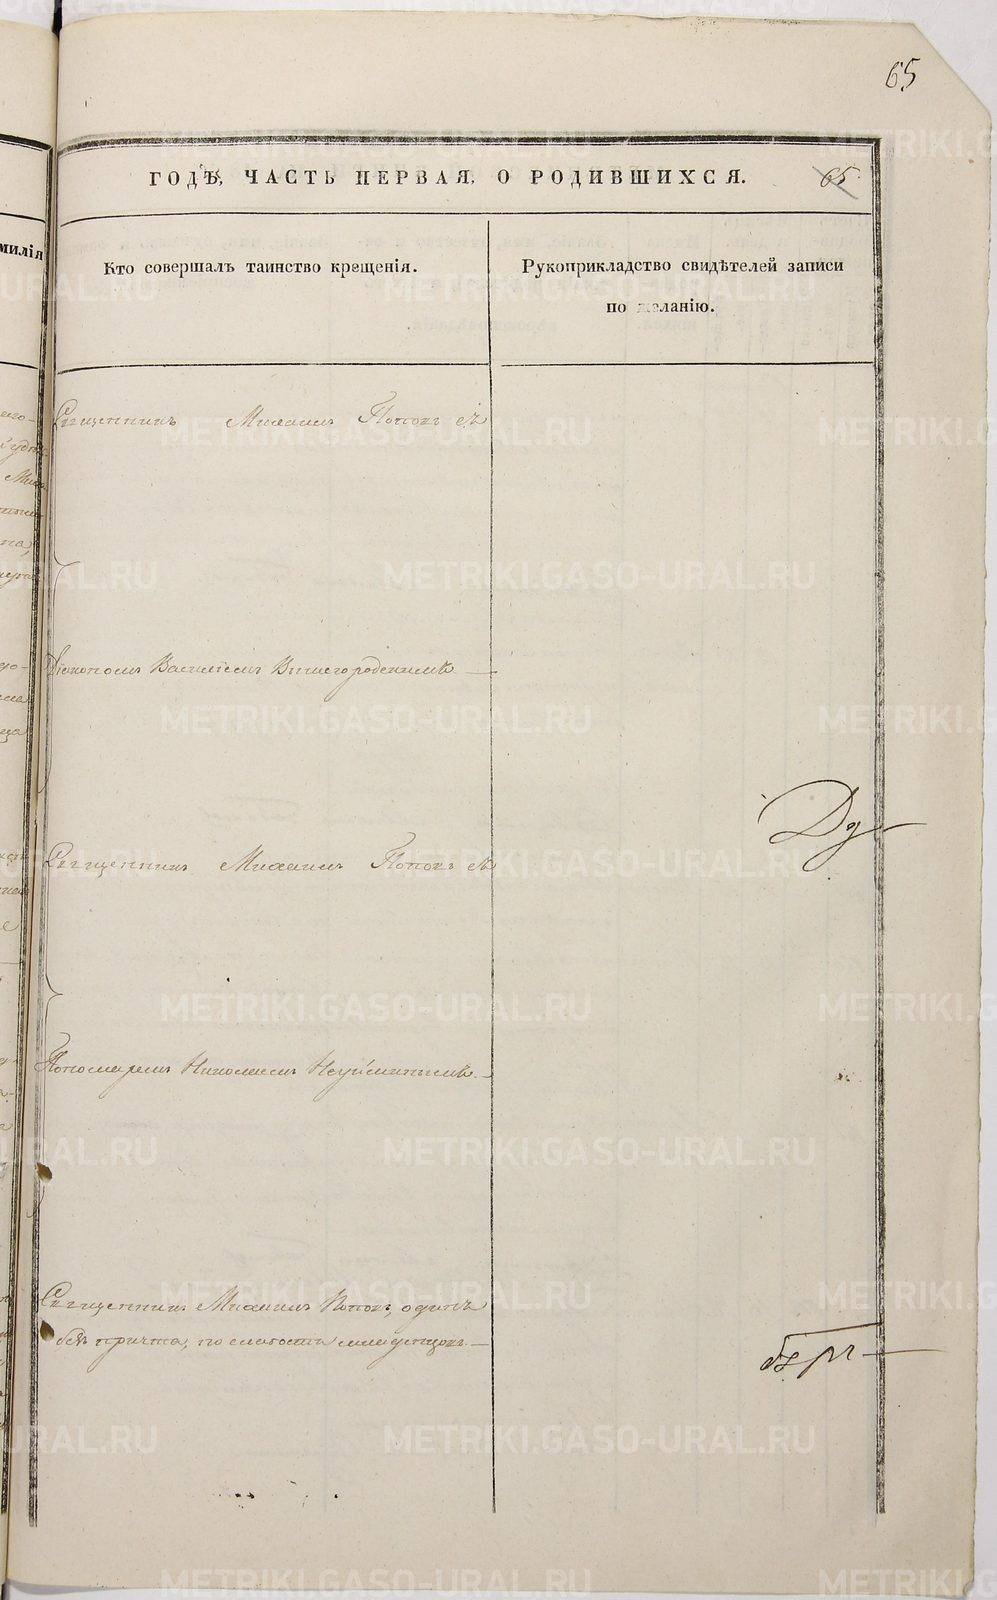 65
ГОДѢ, ЧАСТЬ ПЕРВАЯ, О РОДИВШИХСЯ.
65
милія
Кто совершалъ таинство крещенія.
Рукоприкладство свидѣтелей записи
по желанію.
Священникъ Михаилъ Поповъ съ
Діакономъ Василіемъ Вышегородскимъ
Священникъ Михаилъ Поповъ съ
Пономаремъ Николаемъ Неуйминымъ
Священникъ Михаилъ Поповъ, одинъ
безъ причта, по слабости младенцовъ.
METRIKI.GASO-URAL.RU